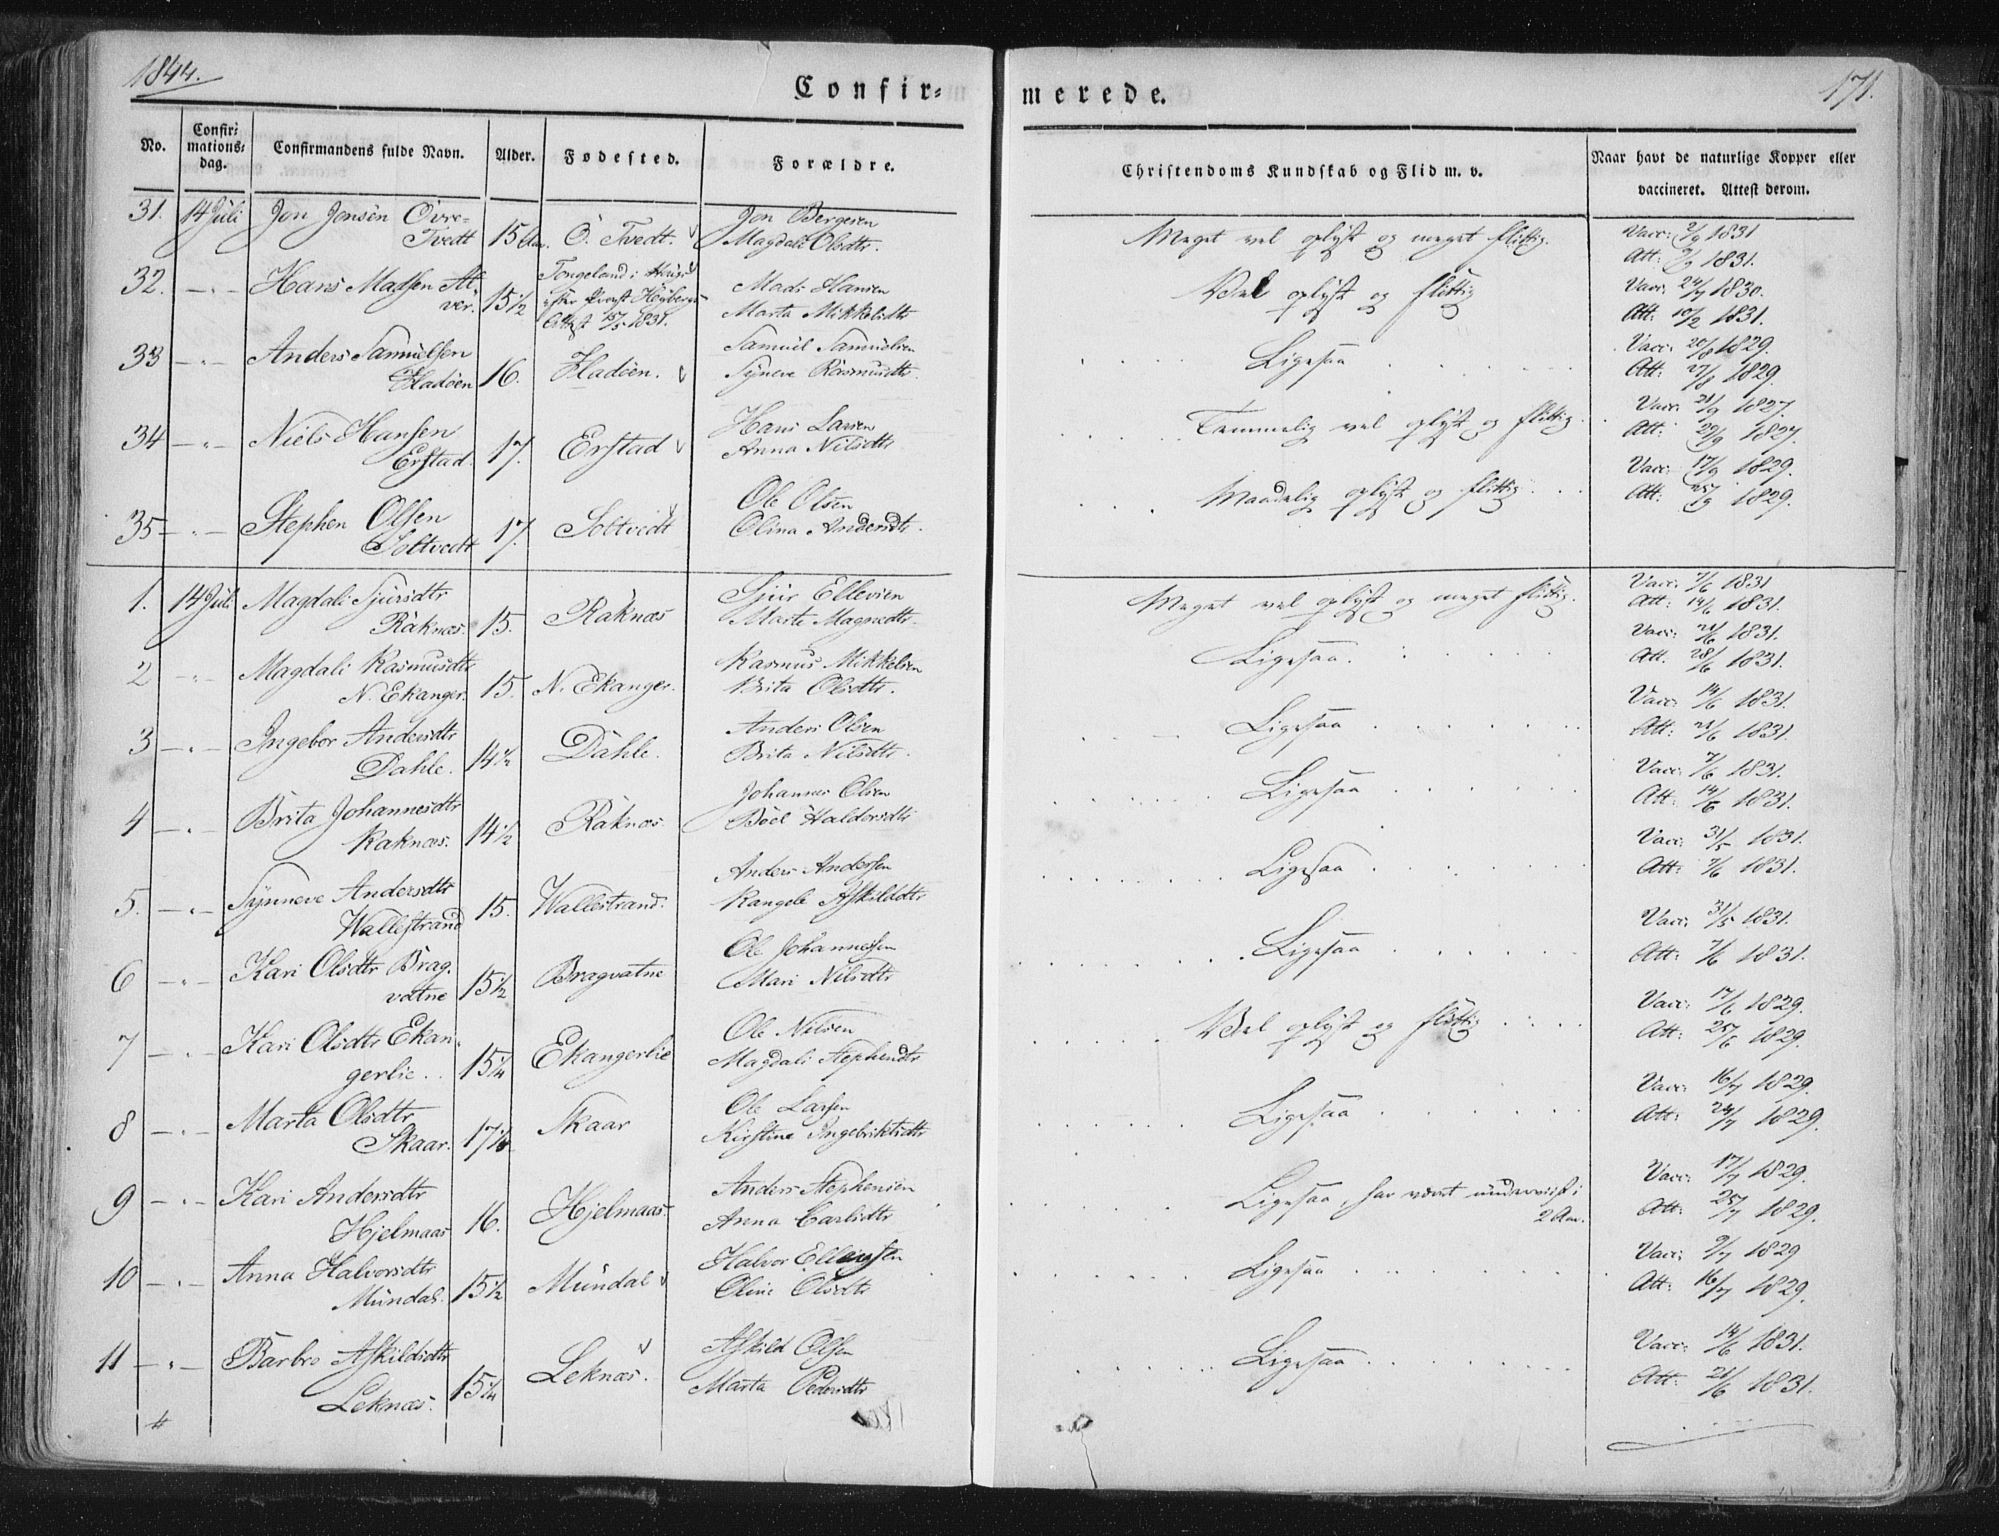 1844.
171.
Confir=
merede.
No.
Confir=
mations=
dag.
Confirmandens fulde Navn.
Alder.
Fødested.
Forældre.
Christendoms Kundskab og Flid m. v.
Naar havt de naturlige Kopper eller
vaccineret. Attest derom.
31. 14 Juli Jon Jonsen Övre- Jon Bergesen Vacc: 2/9 1831
Tvedt 15 Aar. Ö. Tvedt. Magdali Olsdtr. Meget vel oplyst og meget flittig. Att: 9/9 1831.
32. -"- Hans Madsen Al- Tongeland i Mads Hansen Vel oplyst og flittig Vacc: 24/7 1830.
ver. 15 1/2 Attest 15/5 1831. Marta Mikkelsdtr Att: 10/2 1831.
33 -"- Anders Samuelsen Samuel Samuelsen Ligesaa Vacc: 20/8 1829.
Fladöen 16. Fladöen. Synneve Rasmusdtr Att: 27/8 1829.
34 -"- Niels Hansen Hans Larsen Temmelig vel oplyst og flittig. Vacc: 21/9 1827.
Erstad 17. Erstad Anna Nilsdtr Att: 29/9 1827.
35 -"- Stephen Olsen Ole Olsen Maadelig oplyst og flittig Vacc: 17/9 1829.
Soltvedt 17. Soltvedt Olina Andersdtr. Att: 25/9 1829.
1. 14 Juli Magdali Sjursdtr Sjur Ellevsen Meget vel oplyst og meget flittig. Vacc: 7/6 1831
Raknæs. 15. Raknæs Marta Magnedtr. Att: 14/6 1831.
2 -"- Magdali Rasmusdtr Rasmus Mikkelsen Ligesaa. Vacc: 21/6 1831.
N. Ekanger. 15. N. Ekanger. Brita Olsdtr. Att. 28/6 1831.
3 -"- Ingebor Andersdtr Anders Olsen Ligesaa Vacc: 14/6 1831.
Dahle. 14 1/2 Dahle. Brita Nilsdtr. Att: 21/6 1831.
4 -"- Brita Johannesdtr Johannes Olsen Ligesaa Vacc: 7/6 1831.
Raknæs. 14 1/2 Raknæs. Böel Haldorsdtr Att: 14/6 1831.
5. -"- Synneve Andersdtr Anders Andersen Ligesaa Vacc: 31/5 1831.
Wallestrand 15. Wallestrand. Rangele Askildsdtr Att: 7/6 1831.
6 -"- Kari Olsdtr Brag- Ole Johannesen Ligesaa Vacc: 31/5 1831.
vatne 15 1/2 Bragvatne Mari Nilsdtr Att: 7/6 1831.
7 -"- Kari Olsdtr Ekan- Ole Nilsen Vel oplyst og flittig Vacc: 17/6 1829.
gerlie. 15 1/4 Ekangerlie Magdali Stephendtr Att: 25/6 1829.
8 -"- Marta Olsdtr Ole Larsen Ligesaa Vacc: 16/7 1829.
Skaar. 17 1/4 Skaar Kirstine Ingebriktsdtr Att: 24/7 1829.
9 -"- Kari Andersdtr Anders Stephensen Ligesaa, har været underviist i Vacc: 17/7 1829.
Hjelmaas 16. Hjelmaas. Anna Carlsdtr 2 Aar. Att: 25/7 1829.
10 -"- Anna Halvorsdtr Halvor Ellingsen Ligesaa Vacc: 9/7 1829
Mundal. 15 1/2 Mundal Oline Olsdtr Att: 16/7 1829.
11 -"- Barbro Askildsdtr Askild Olsen Ligesaa Vacc: 14/6 1831.
Leknæs. 15 1/4 Leknæs. Marta Pedersdtr Att: 21/6 1831.